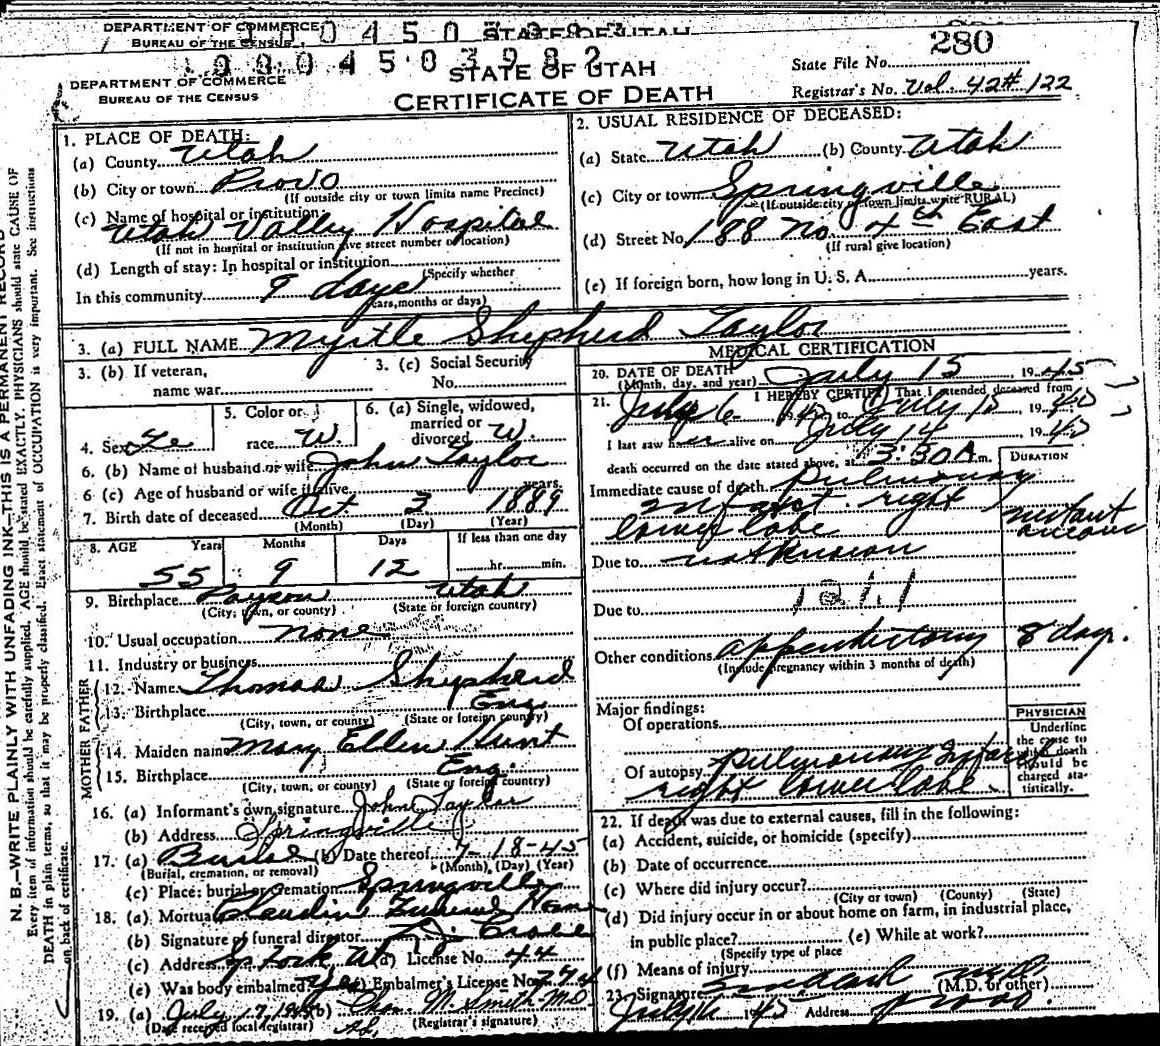 DEPARTMENT OF COMMERCE
BUREAU OF THE CENSUS
STATE OF UTAH
280
DEPARTMENT OF COMMERCE
BUREAU OF THE CENSUS
STATE OF UTAH
CERTIFICATE OF DEATH
State File No.
Registrar's No. Vol. 42 # 122
1. PLACE OF DEATH:
(a) County Utah
(b) City or town Provo
(If outside city or town limits name Precinct)
(c) Name of hospital or institution:
Utah Valley Hospital
(If not in hospital or institution give street number or location)
(d) Length of stay: In hospital or institution
(Specify whether
In this community 9 days
years, months or days)
2. USUAL RESIDENCE OF DECEASED:
(a) State Utah (b) County Utah
(c) City or town Springville
(If outside city or town limits write RURAL)
(d) Street No. 188 No. 4th East
(If rural give location)
(e) If foreign born, how long in U. S. A. years.
3. (a) FULL NAME Myrtle Shepherd Taylor
3. (b) If veteran,
name war
3. (c) Social Security
No.
4. Sex Fe
5. Color or
race W.
6. (a) Single, widowed,
married or
divorced W.
6. (b) Name of husband or wife John Taylor
6 (c) Age of husband or wife if alive years.
7. Birth date of deceased Oct 3 1889
(Month) (Day) (Year)
8. AGE Years Months Days If less than one day
55 9 12 hr. min.
9. Birthplace Payson Utah
(City, town, or county) (State or foreign country)
10. Usual occupation none
11. Industry or business
FATHER
12. Name Thomas Shepherd
13. Birthplace Eng.
(City, town, or county) (State or foreign country)
MOTHER
14. Maiden name Mary Ellen Hunt
15. Birthplace Eng.
(City, town, or county) (State or foreign country)
16. (a) Informant's own signature John Taylor
(b) Address Springville
17. (a) Burial (b) Date thereof 7-18-45
(Burial, cremation, or removal) (Month) (Day) (Year)
(c) Place: burial or cremation Springville
18. (a) Mortuary Claudin Funeral Home
(b) Signature of funeral director
(c) Address Sp Fork Ut (d) License No. 44
(e) Was body embalmed? Yes (f) Embalmer's License No.
19. (a) July 17, 1945 (b) Chas. M. Smith M.D.
(Date received local registrar) (Registrar's signature)
MEDICAL CERTIFICATION
20. DATE OF DEATH July 15 1945
(Month, day, and year)
21. I HEREBY CERTIFY That I attended deceased from
July 6 to July 15
I last saw her alive on July 14
death occurred on the date stated above, at 3:30 A m.
DURATION
Immediate cause of death Pulmonary
infarct right
lower lobe
instant
Due to not known
Due to 121.1
Other conditions appendectomy 8 days.
(Include pregnancy within 3 months of death)
Major findings:
Of operations
Of autopsy Pulmonary Infarct
right lower lobe
PHYSICIAN
Underline
the cause to
which death
should be
charged sta-
tistically.
22. If death was due to external causes, fill in the following:
(a) Accident, suicide, or homicide (specify)
(b) Date of occurrence
(c) Where did injury occur?
(City or town) (County) (State)
(d) Did injury occur in or about home on farm, in industrial place,
in public place? (e) While at work?
(Specify type of place
(f) Means of injury
23. Signature
(M.D. or other)
July 16 1945 Address Provo.
N. B.—WRITE PLAINLY WITH UNFADING INK—THIS IS A PERMANENT RECORD
Every item of information should be carefully supplied. AGE should be stated EXACTLY. PHYSICIANS should state CAUSE OF
DEATH in plain terms, so that it may be properly classified. Exact statement of OCCUPATION is very important. See instructions
on back of certificate.